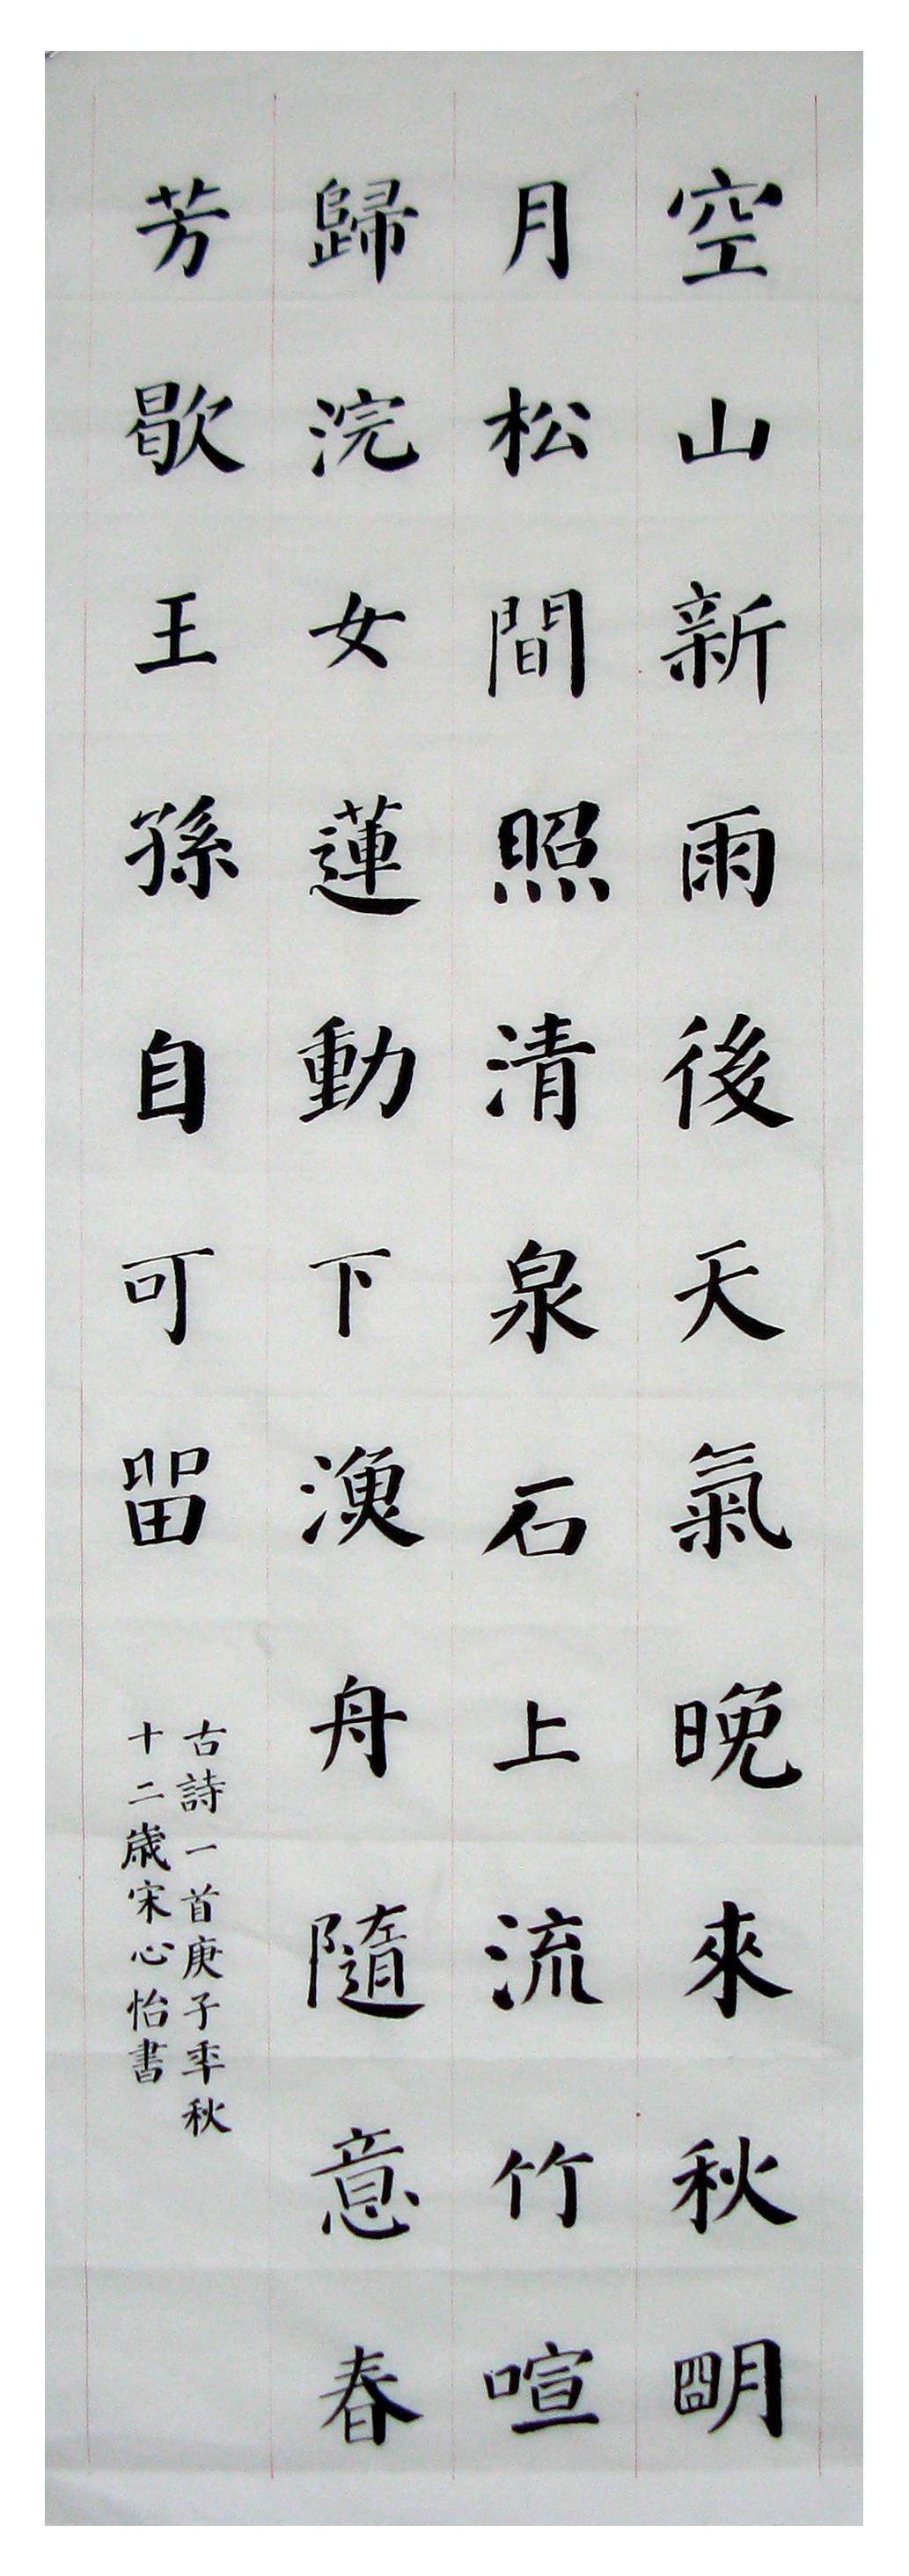 空山新雨後天氣晚來秋明
月松間照清泉石上流竹喧
歸浣女蓮動下漁舟隨意春
芳歇王孫自可留
古詩一首庚子年秋
十二歲宋心怡書